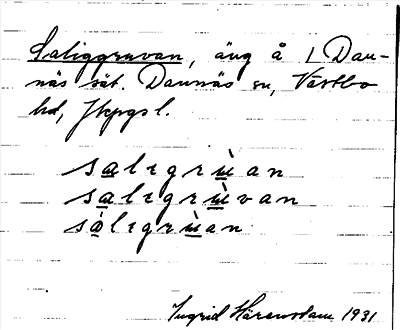 Saliggruvan, äng å 1 Dan-
näs sät. Dannäs sn, Västbo
hd, Jkpgs l.
salɩgrùan
salɩgrùvan
sàlɩgrùan
Ingrid 1931